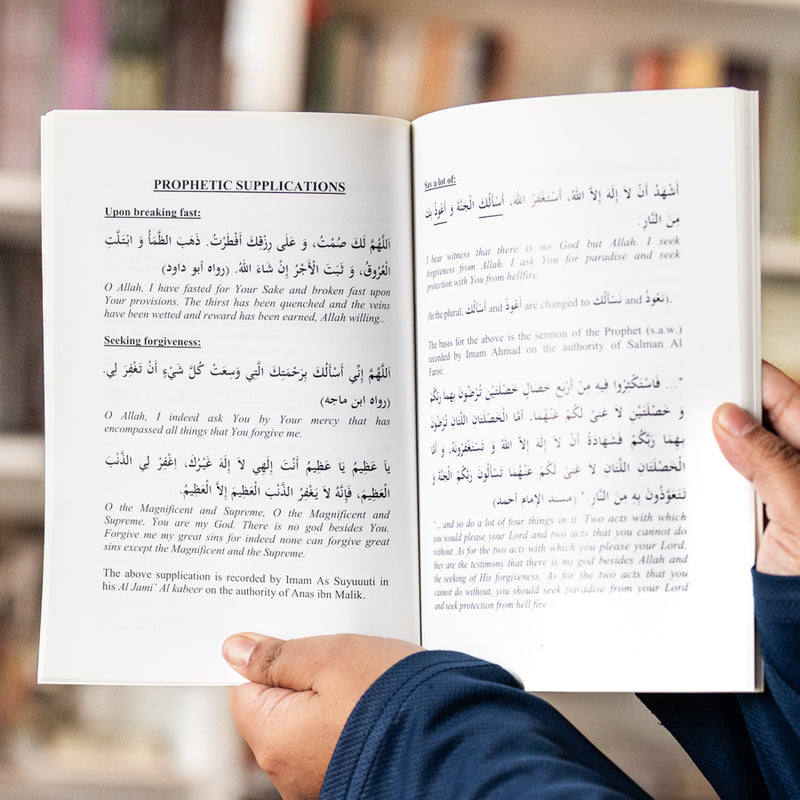 PROPHETIC SUPPLICATIONS
Upon breaking fast:
اَللَّهُمَّ لَكَ صُمْتُ، وَ عَلَى رِزْقِكَ أَفْطَرْتُ. ذَهَبَ الظَّمَأُ وَ ابْتَلَّتِ
الْعُرُوقُ، وَ ثَبَتَ الْأَجْرُ إِنْ شَاءَ اللهُ. (رواه أبو داود)
O Allah, I have fasted for Your Sake and broken fast upon
Your provisions. The thirst has been quenched and the veins
have been wetted and reward has been earned, Allah willing..
Seeking forgiveness:
اَللَّهُمَّ إِنِّي أَسْأَلُكَ بِرَحْمَتِكَ الَّتِي وَسِعَتْ كُلَّ شَيْءٍ أَنْ تَغْفِرَ لِي.
(رواه ابن ماجه)
O Allah, I indeed ask You by Your mercy that has
encompassed all things that You forgive me.
يَا عَظِيمُ يَا عَظِيمُ أَنْتَ إِلَهِي لاَ إِلَهَ غَيْرُكَ، اِغْفِرْ لِي الذَّنْبَ
الْعَظِيمَ، فَإِنَّهُ لاَ يَغْفِرُ الذَّنْبَ الْعَظِيمَ إِلاَّ الْعَظِيمُ.
O the Magnificent and Supreme, O the Magnificent and
Supreme, You are my God. There is no god besides You.
Forgive me my great sins for indeed none can forgive great
sins except the Magnificent and the Supreme.
The above supplication is recorded by Imam As Suyuuti in
his Al Jami' Al kabeer on the authority of Anas ibn Malik.
Say a lot of:
أَشْهَدُ أَنْ لاَ إِلَهَ إِلاَّ اللهُ، أَسْتَغْفِرُ اللهَ، أَسْأَلُكَ الْجَنَّةَ وَ أَعُوذُ بِكَ
مِنَ النَّارِ.
I bear witness that there is no God but Allah. I seek
forgiveness from Allah. I ask You for paradise and seek
protection with You from hellfire.
(In the plural, أَسْأَلُكَ and أَعُوذُ are changed to نَسْأَلُكَ and نَعُوذُ).
The basis for the above is the sermon of the Prophet (s.a.w.)
recorded by Imam Ahmad on the authority of Salman Al
Farisi:
"... فَاسْتَكْثِرُوا فِيهِ مِنْ أَرْبَعِ خِصَالٍ خَصْلَتَيْنِ تُرْضُونَ بِهِمَا رَبَّكُمْ
وَ خَصْلَتَيْنِ لاَ غِنَى لَكُمْ عَنْهُمَا. أَمَّا الْخَصْلَتَانِ اللَّتَانِ تُرْضُونَ
بِهِمَا رَبَّكُمْ فَشَهَادَةُ أَنْ لاَ إِلَهَ إِلاَّ اللهُ وَ تَسْتَغْفِرُونَهُ، وَ أَمَّا
الْخَصْلَتَانِ اللَّتَانِ لاَ غِنَى لَكُمْ عَنْهُمَا تَسْأَلُونَ رَبَّكُمُ الْجَنَّةَ وَ
تَتَعَوَّذُونَ بِهِ مِنَ النَّارِ." (مسند الإمام أحمد)
"... and so do a lot of four things in it. Two acts with which
you would please your Lord and two acts that you cannot do
without. As for the two acts with which you please your Lord,
they are the testimony that there is no god besides Allah and
the seeking of His forgiveness. As for the two acts that you
cannot do without, you should seek paradise from your Lord
and seek protection from hell fire."